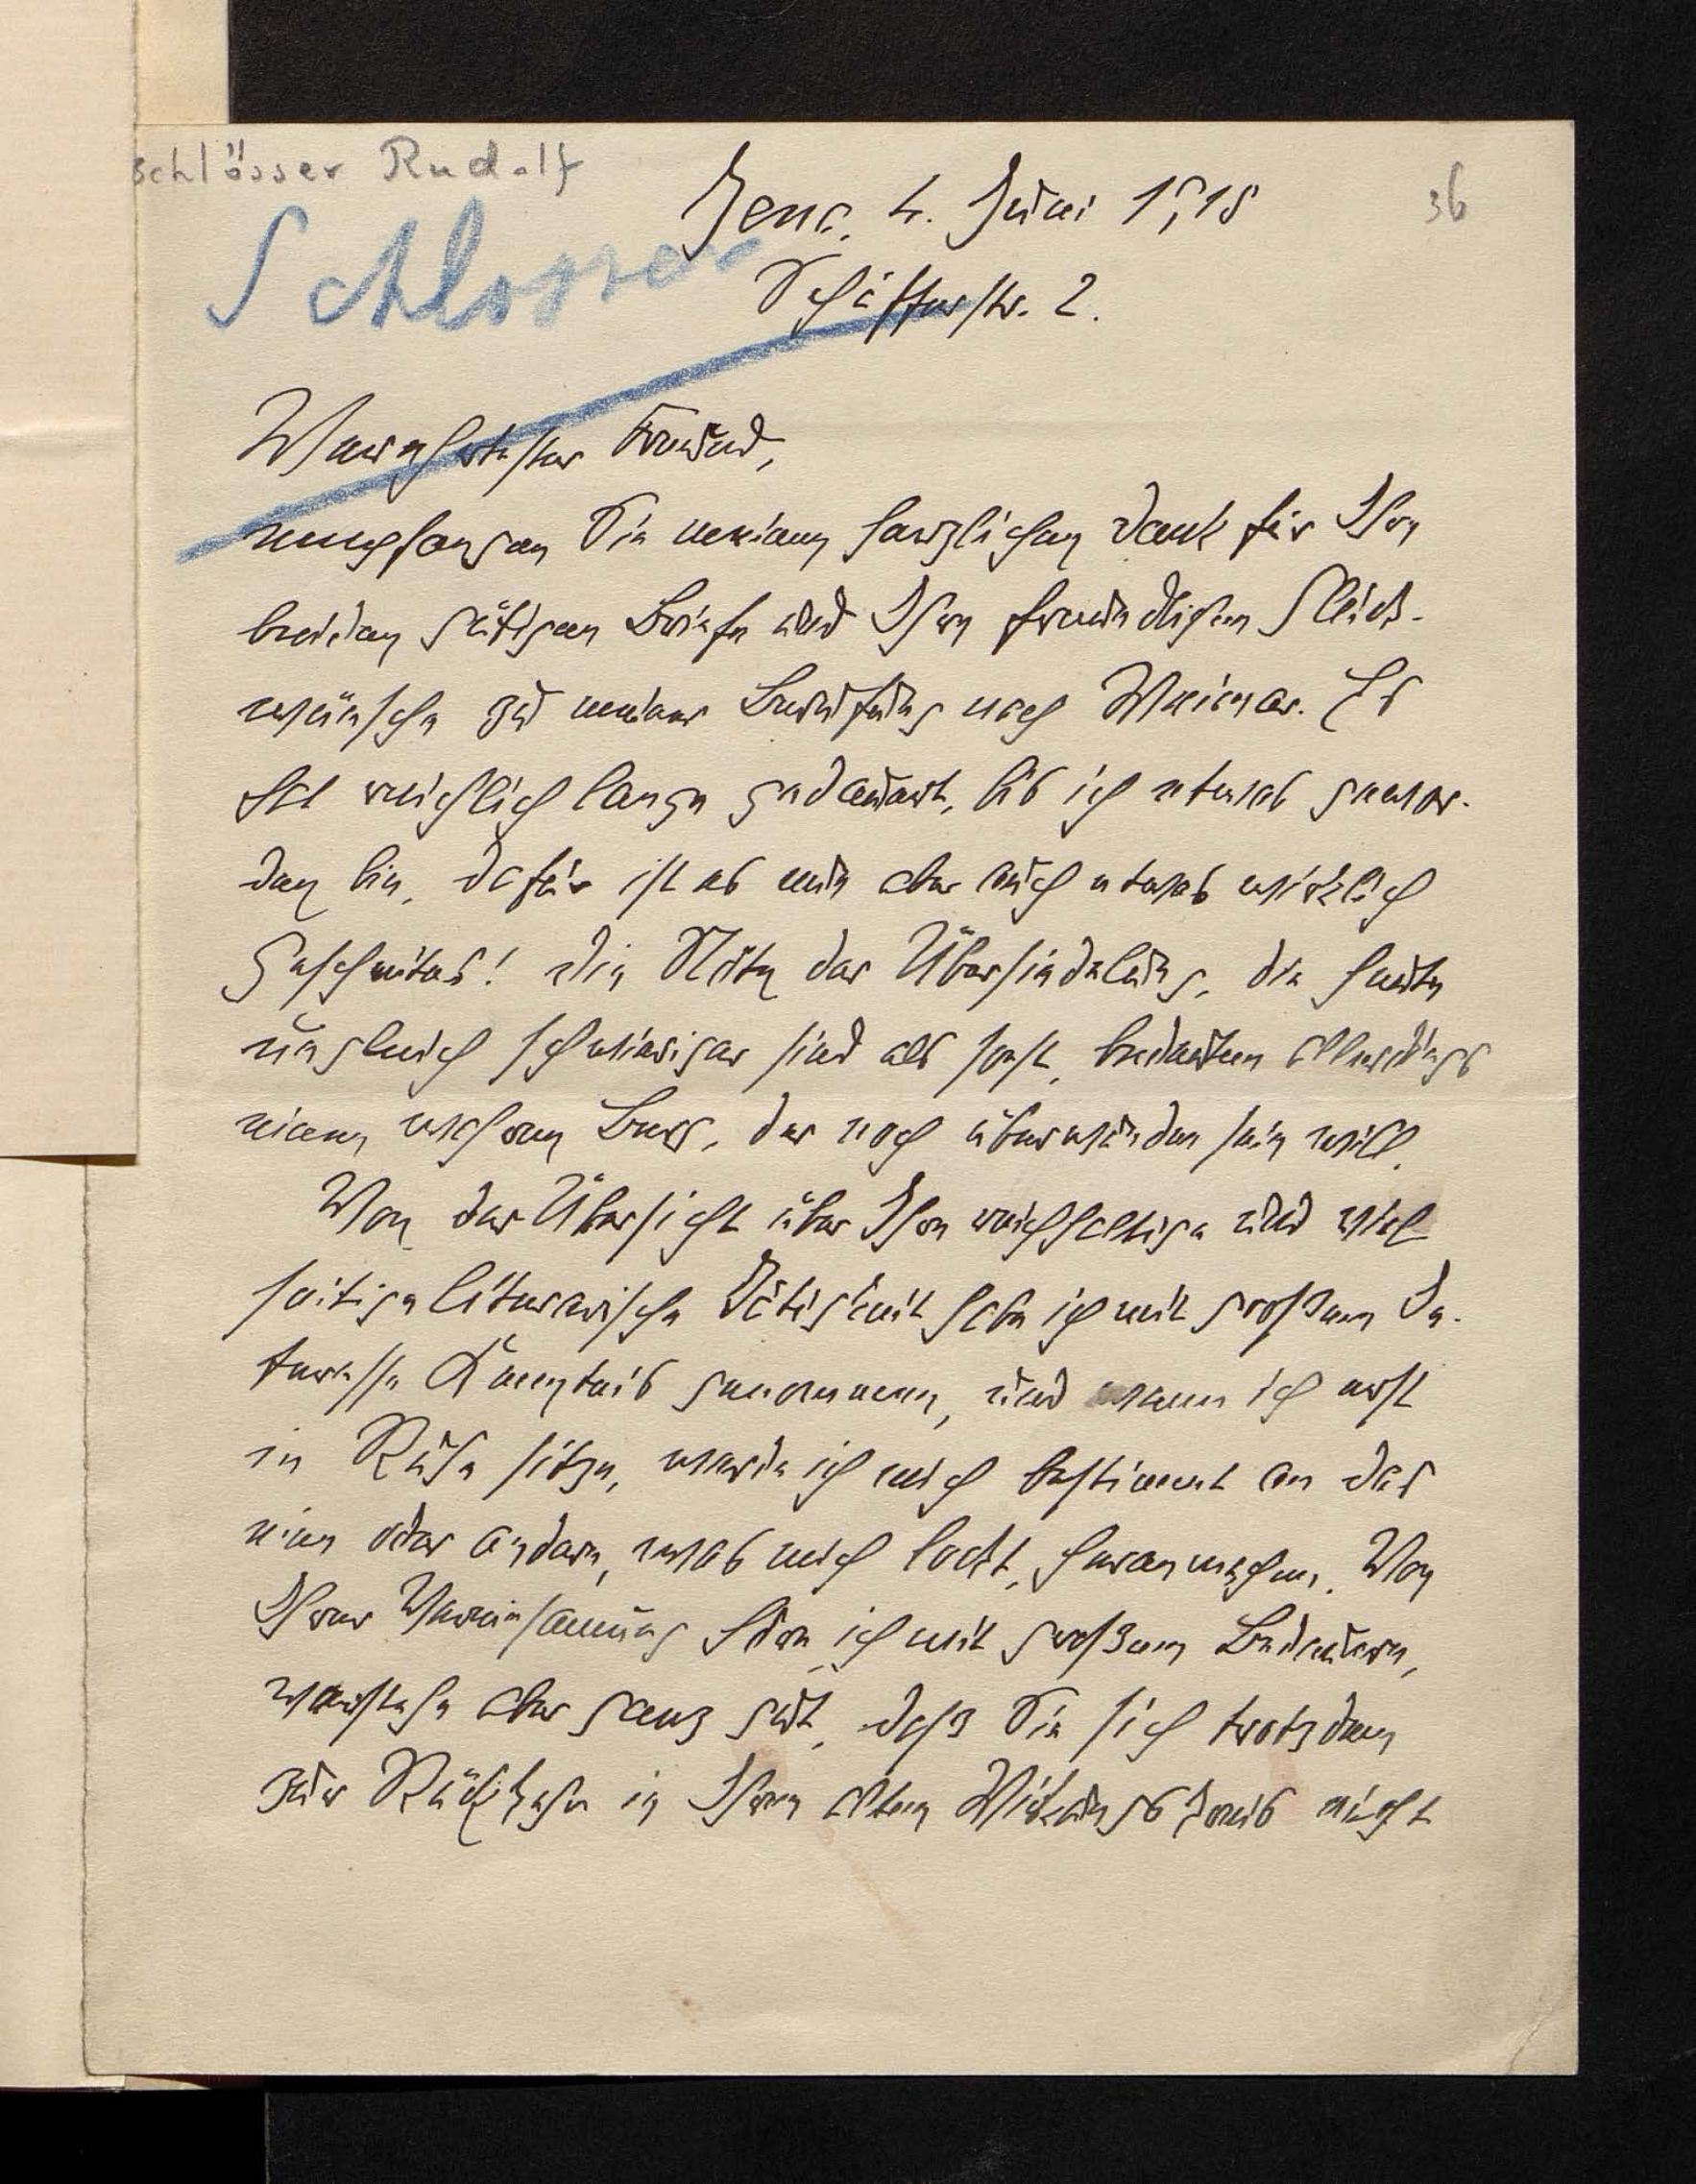 Schlösser Rudolf
36
Schlosser
Jena, 4. Juni 1918
Schäfferstr. 2.
Verehrtester Freund,
empfangen Sie meinen herzlichen Dank für Ihre
beiden gütigen Briefe und Ihre freundlichen Glück-
wünsche zu meiner Berufung nach Weimar. Es
hat reichlich lange gedauert, bis ich etwas gewor-
den bin, dafür ist es nun aber auch etwas wirklich
Gescheites! Die Nöte der Übersiedelung, die heute
ungleich schwieriger sind als sonst, bedeuten allerdings
einen wahren Berg, der noch überwunden sein will.
Von der Übersicht über Ihre reichhaltige und viel
seitige literarische Tätigkeit habe ich mit großem In-
teresse Kenntnis genommen, und wenn ich erst
in Ruhe sitze, werde ich mich bestimmt an das
ein oder andere, was mich lockt, heranmachen. Von
Ihrer Vereinsamung höre ich mit großem Bedauern,
verstehe aber ganz gut, daß Sie sich trotzdem
zur Rückkehr in Ihren alten Wirkungskreis nicht